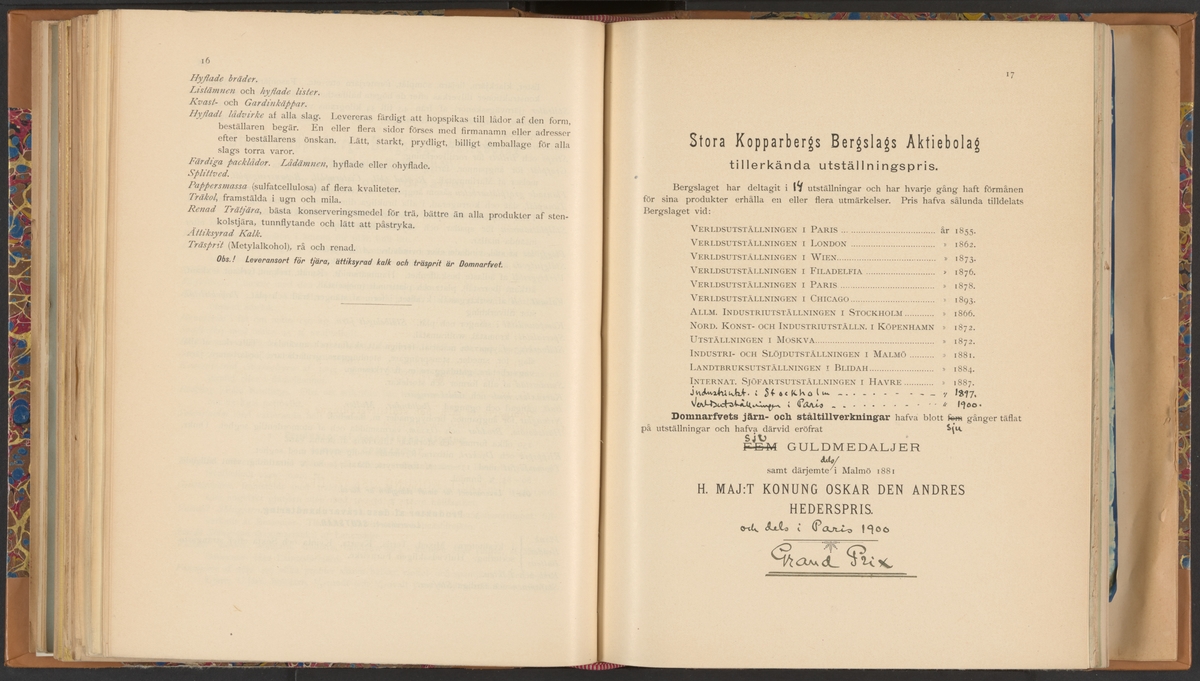 16
Hyflade bräder.
Listämnen och hyflade lister.
Kvast- och Gardinkäppar.
Hyfladt lådvirke af alla slag. Levereras färdigt att hopspikas till lådor af den form,
beställaren begär. En eller flera sidor förses med firmanamn eller adresser
efter beställarens önskan. Lätt, starkt, prydligt, billigt emballage för alla
slags torra varor.
Färdiga packlådor. Lådämnen, hyflade eller ohyflade.
Splittved.
Pappersmassa (sulfatcellulosa) af flera kvaliteter.
Träkol, framstälda i ugn och mila.
Renad Trätjära, bästa konserveringsmedel för trä, bättre än alla produkter af sten-
kolstjära, tunnflytande och lätt att påstryka.
Ättiksyrad Kalk.
Träsprit (Metylalkohol), rå och renad.
Obs.! Leveransort för tjära, ättiksyrad kalk och träsprit är Domnarfvet.
17
Stora Kopparbergs Bergslags Aktiebolag
tillerkända utställningspris.
Bergslaget har deltagit i 14 utställningar och har hvarje gång haft förmånen
för sina produkter erhålla en eller flera utmärkelser. Pris hafva sålunda tilldelats
Bergslaget vid:
Verldsutställningen i Paris ... år 1855.
Verldsutställningen i London ... » 1862.
Verldsutställningen i Wien ... » 1873.
Verldsutställningen i Filadelfia ... » 1876.
Verldsutställningen i Paris ... » 1878.
Verldsutställningen i Chicago ... » 1893.
Allm. Industriutställningen i Stockholm ... » 1866.
Nord. Konst- och Industriutställn. i Köpenhamn » 1872.
Utställningen i Moskva ... » 1872.
Industri- och Slöjdutställningen i Malmö ... » 1881.
Landtbruksutställningen i Blidah ... » 1884.
Internat. Sjöfartsutställningen i Havre ... » 1887.
Industriutst. i Stockholm - - - - - - - - " 1897.
Verldsutställningen i Paris - - - - - - - - " 1900.
Domnarfvets järn- och ståltillverkningar hafva blott fem gånger täflat
på utställningar och hafva därvid eröfrat sju
sju
FEM GULDMEDALJER
dels/
samt därjemte i Malmö 1881
H. MAJ:T KONUNG OSKAR DEN ANDRES
HEDERSPRIS.
och dels i Paris 1900
Grand Prix